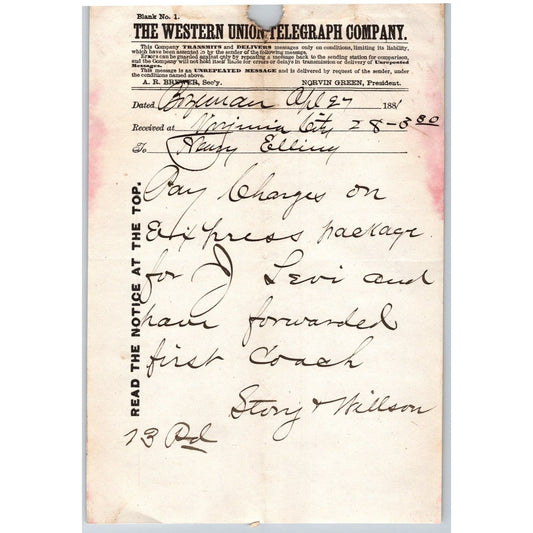 Blank No. 1.
THE WESTERN UNION TELEGRAPH COMPANY.
This Company TRANSMITS and DELIVERS messages only on conditions, limiting its liability,
which have been assented to by the sender of the following message.
Errors can be guarded against only by repeating a message back to the sending station for comparison,
and the Company will not hold itself liable for errors or delays in transmission or delivery of Unrepeated
Messages.
This message is an UNREPEATED MESSAGE and is delivered by request of the sender, under
the conditions named above.
A. R. BREWER, Sec'y. NORVIN GREEN, President.
Dated Bozeman Apl 27 1881
Received at Virginia City 28-3 30
To Henry Elling
READ THE NOTICE AT THE TOP.
Pay Charges on
Express package
for J Levi and
have forwarded
first Coach
Story & Willson
13 Pd